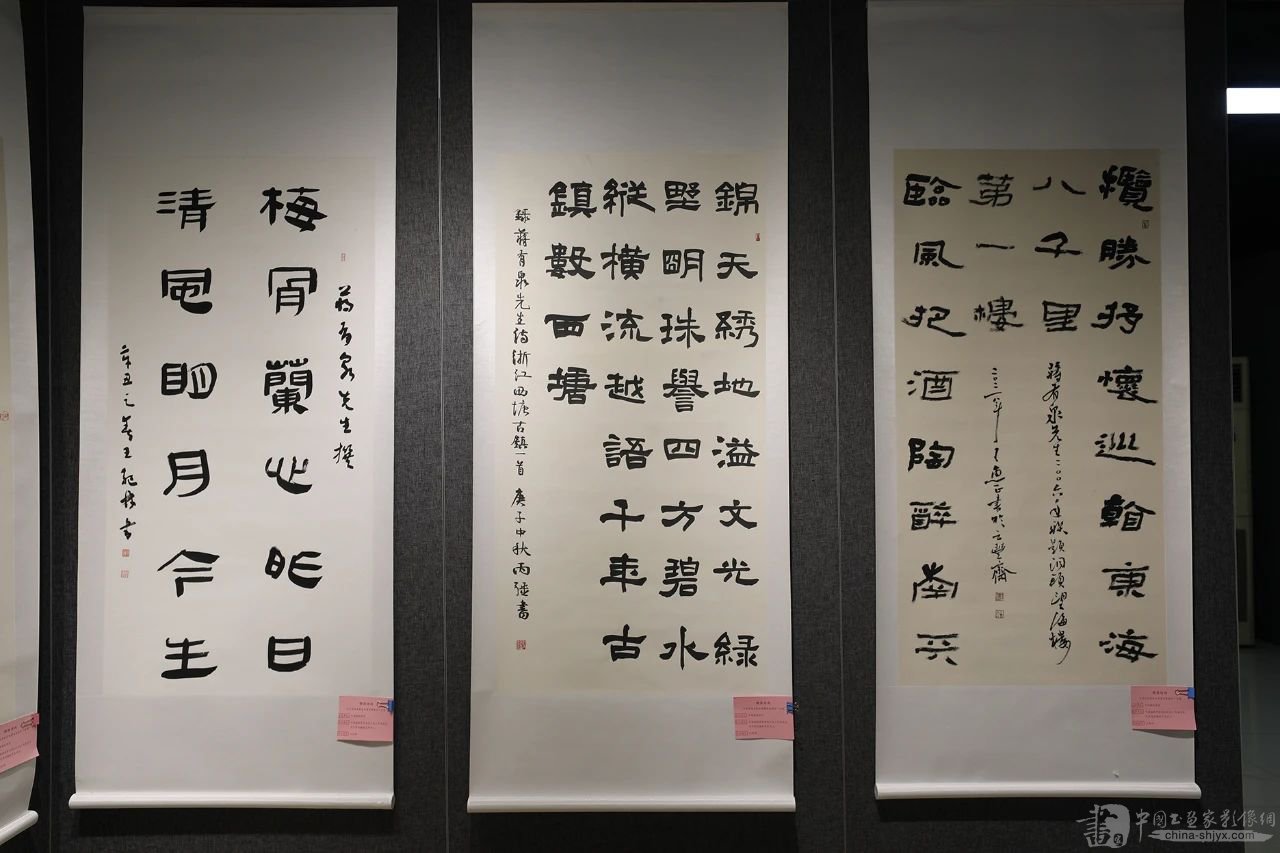 攬勝抒懷巡翰東海
八千里
蔣有泉先生二〇〇六年題洞頭望海樓
臨風把酒陶醉南天
第一樓
錦天綉地溢文光綠
墅明珠譽四方碧水
縱橫流越語千年古
鎮數西塘
錄蔣有泉先生詩浙江西塘古鎮一首 庚子中秋 丙強書
蔣有泉先生撰
梅骨蘭心昨日
清風明月今生
辛丑之春王
中国书画家影像網
china-shjyx.com